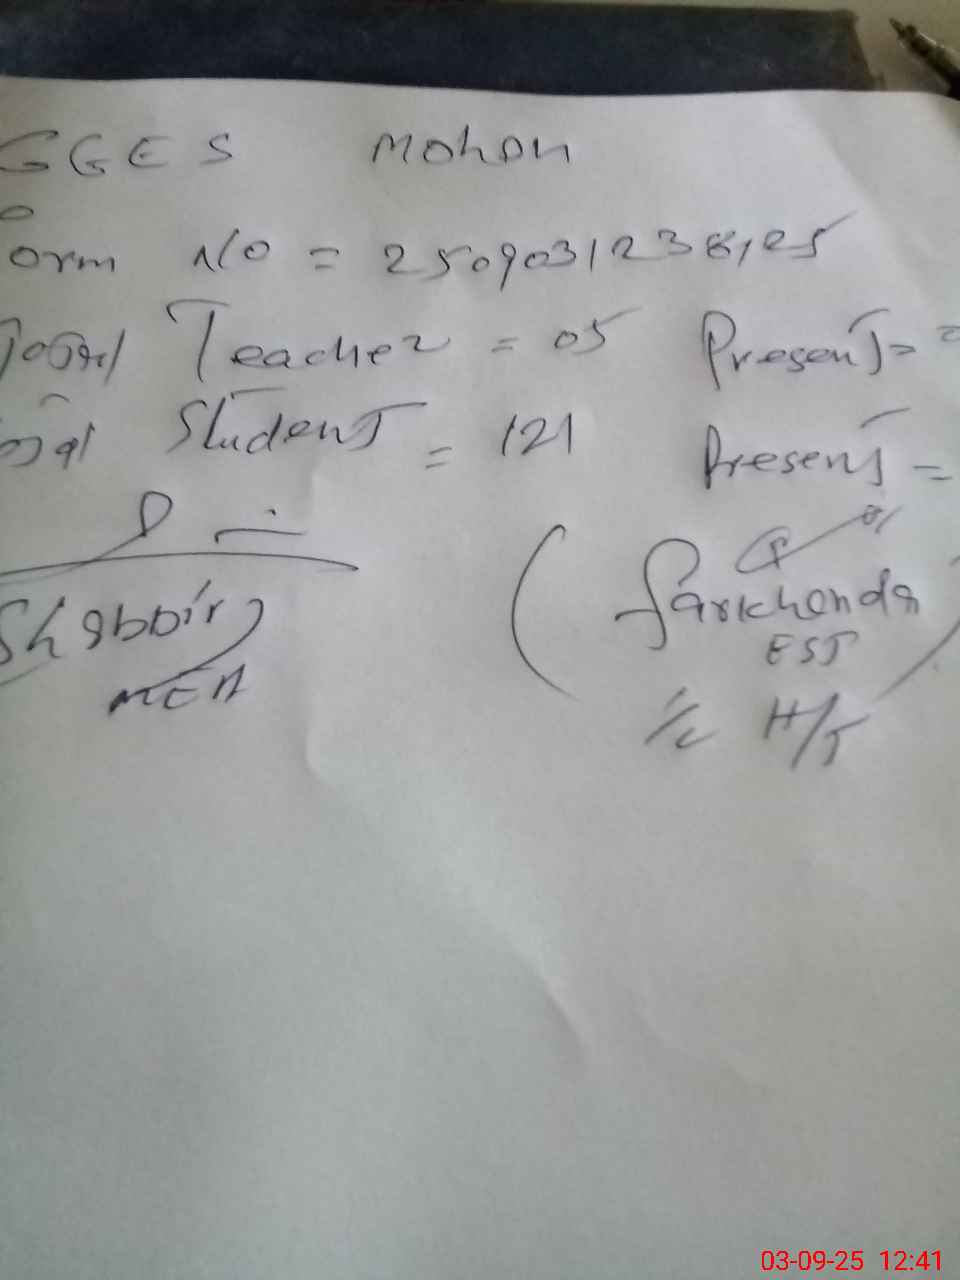 GGES Mohan
orm No = 2509031238125
Total Teacher = 05 Present =
otal Student = 121 Present =
Shabbir
MEA
(Farkhanda)
EST
I/c H/T
03-09-25 12:41